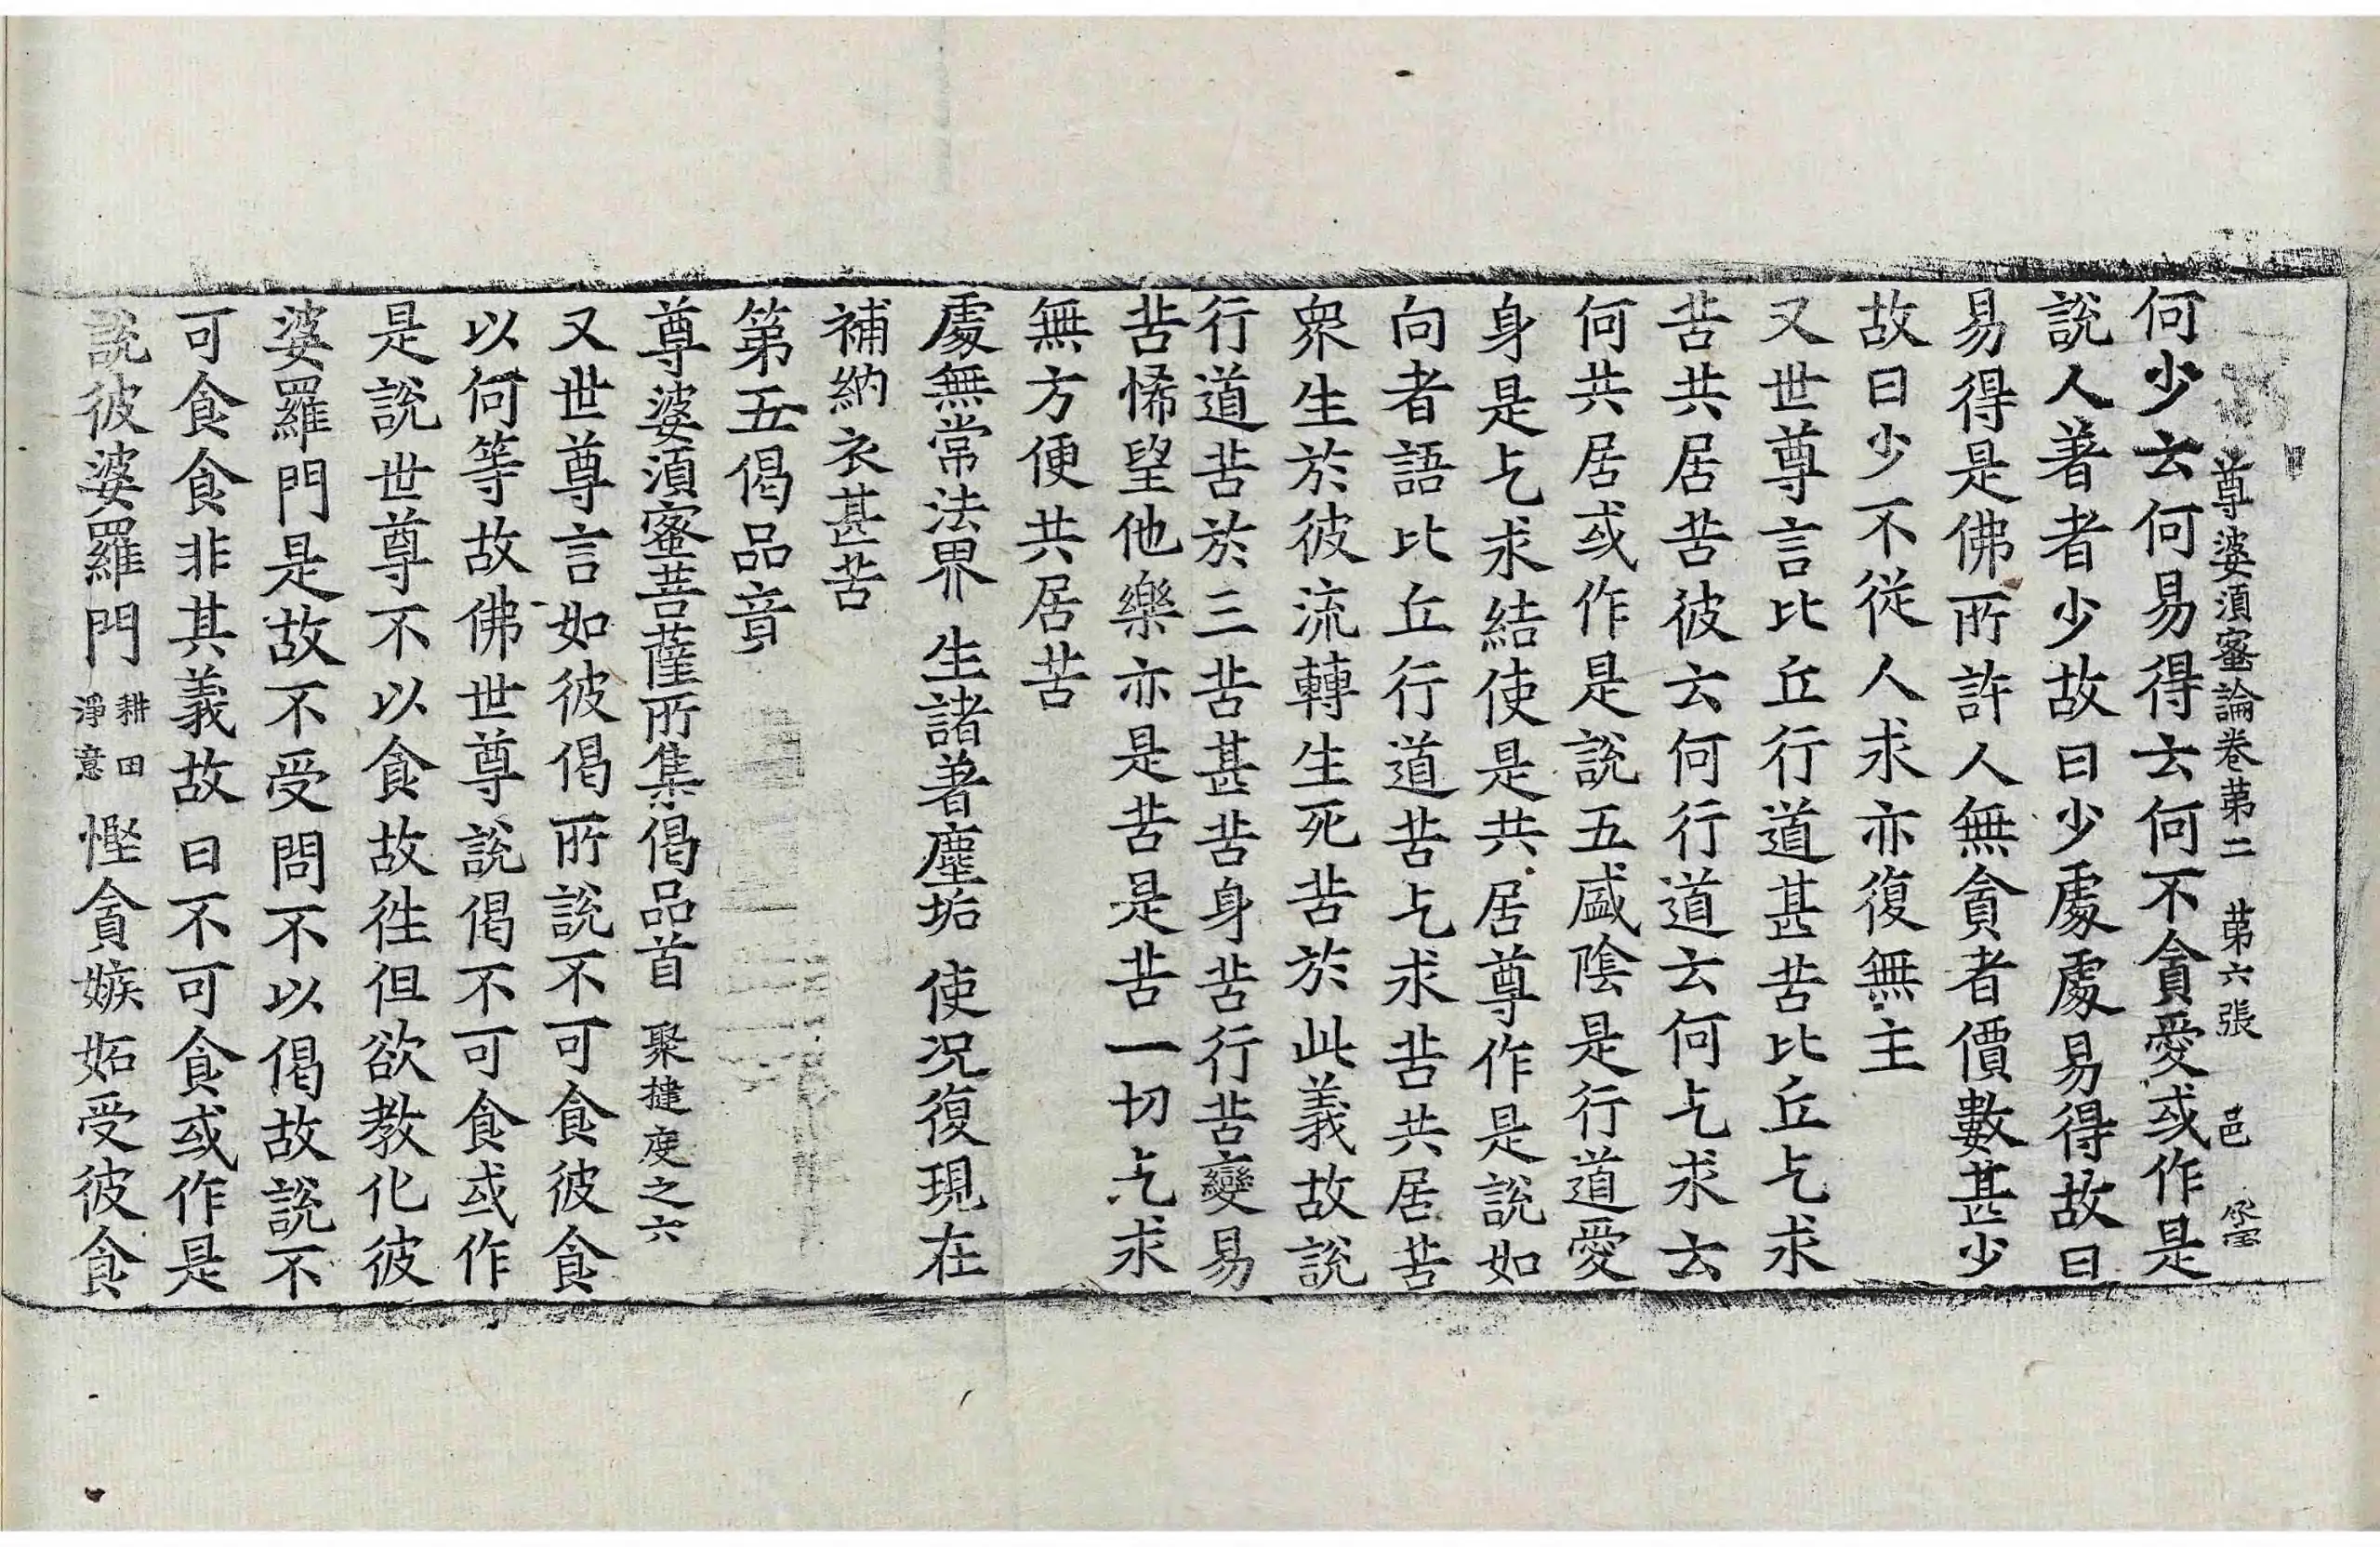 尊婆湏蜜論卷苐二　苐六張　邑
何少云何易得云何不貪愛或作是
說人著者少故曰少處處易得故曰
易得是佛所許人無貪者價數甚少
故曰少不從人求亦復無主
又世尊言比丘行道甚苦比丘乞求
苦共居苦彼云何行道云何乞求云
何共居或作是說五盛陰是行道愛
身是乞求結使是共居尊作是說如
向者語比丘行道苦乞求苦共居苦
衆生於彼流轉生死苦於此義故說
行道苦於三苦甚苦身苦行苦變易
苦悕望他樂亦是苦是苦一切乞求
無方便共居苦
處無常法界　生諸著塵垢　使況復現在
補納衣甚苦
第五偈品竟
尊婆湏蜜菩薩所集偈品首　聚揵度之六
又世尊言如彼偈所說不可食彼食
以何等故佛世尊說偈不可食或作
是說世尊不以食故徃但欲教化彼
婆羅門是故不受問不以偈故說不
可食食非其義故曰不可食或作是
說彼婆羅門耕田淨意慳貪嫉妬受彼食